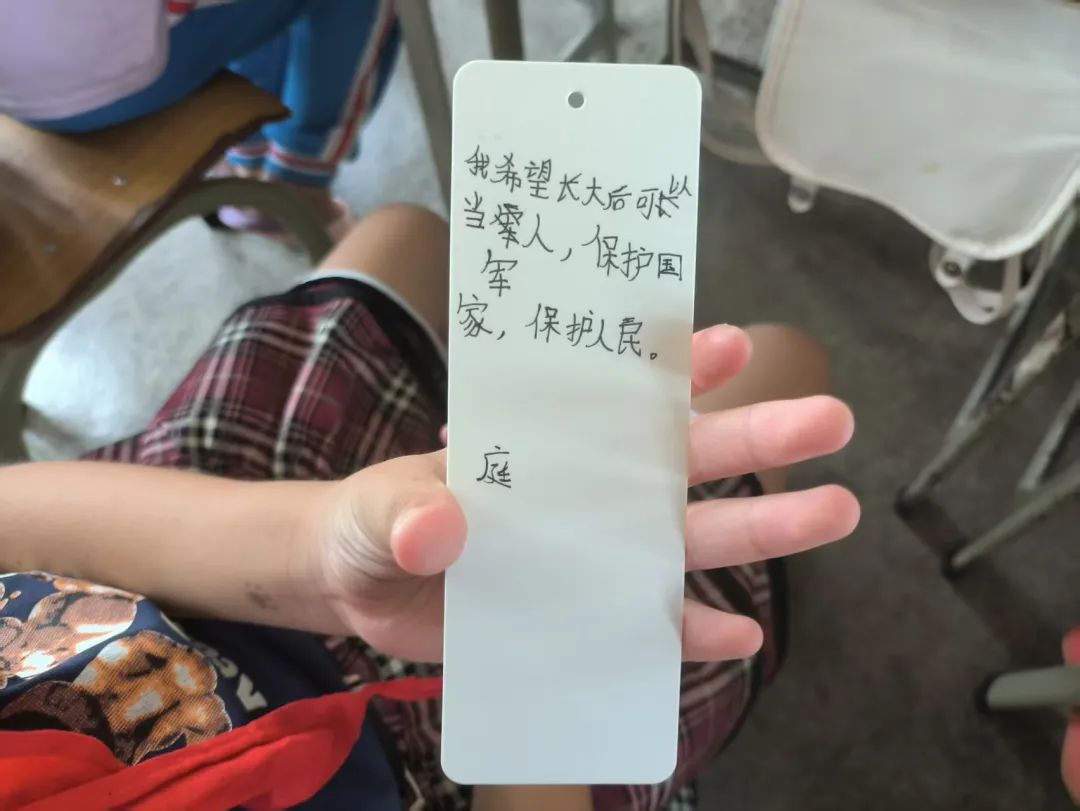 我希望长大后可以
当军人，保护国
家，保护人民。
庭